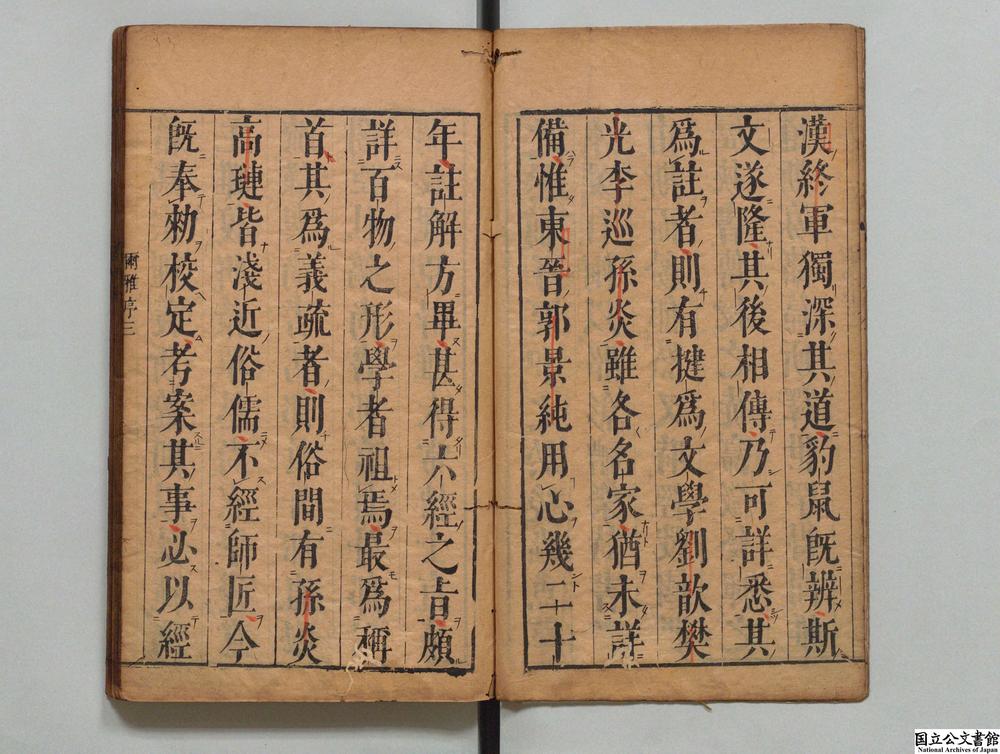 漢終軍獨深其道豹鼠旣辨斯
文遂隆其後相傳乃可詳悉其
爲註者則有揵爲文學劉歆樊
光李巡孫炎雖各名家猶未詳
備惟東晉郭景純用心幾二十
年註解方畢甚得六經之旨頗
詳百物之形學者祖焉最爲稱
首其爲義疏者則俗間有孫炎
高璉皆淺近俗儒不經師匠今
旣奉勑校定考案其事必以經
爾雅序三
国立公文書館
National Archives of Japan